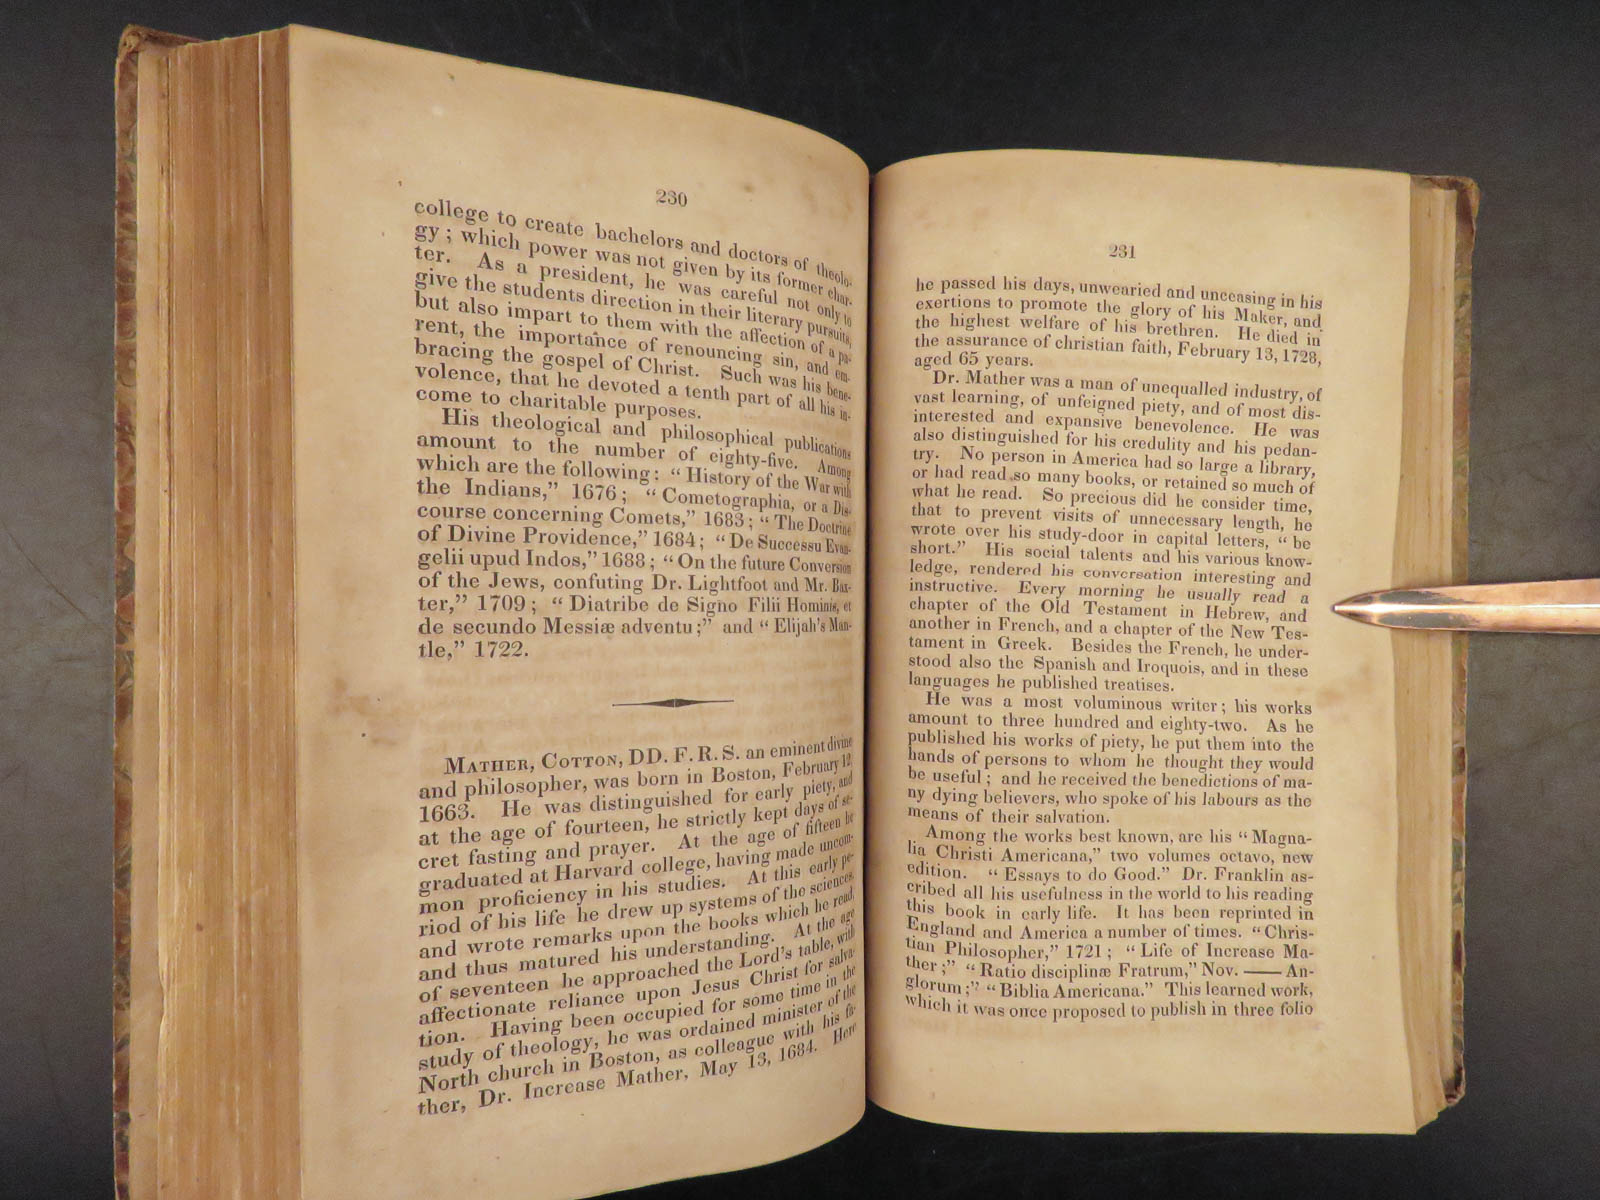 230
college to create bachelors and doctors of theolo-
gy; which power was not given by its former char-
ter. As a president, he was careful not only to
give the students direction in their literary pursuits,
but also impart to them with the affection of a pa-
rent, the importance of renouncing sin, and em-
bracing the gospel of Christ. Such was his bene-
volence, that he devoted a tenth part of all his in-
come to charitable purposes.
His theological and philosophical publications
amount to the number of eighty-five. Among
which are the following: “History of the War with
the Indians,” 1676; “Cometographia, or a Dis-
course concerning Comets,” 1683; “The Doctrine
of Divine Providence,” 1684; “De Successu Evan-
gelii upud Indos,” 1688; “On the future Conversion
of the Jews, confuting Dr. Lightfoot and Mr. Bax-
ter,” 1709; “Diatribe de Signo Filii Hominis, et
de secundo Messiæ adventu;” and “Elijah's Man-
tle,” 1722.
MATHER, COTTON, DD. F. R. S. an eminent divine
and philosopher, was born in Boston, February 12,
1663. He was distinguished for early piety, and
at the age of fourteen, he strictly kept days of se-
cret fasting and prayer. At the age of fifteen he
graduated at Harvard college, having made uncom-
mon proficiency in his studies. At this early pe-
riod of his life he drew up systems of the sciences,
and wrote remarks upon the books which he read,
and thus matured his understanding. At the age
of seventeen he approached the Lord's table, with
affectionate reliance upon Jesus Christ for salva-
tion. Having been occupied for some time in the
study of theology, he was ordained minister of the
North church in Boston, as colleague with his fa-
ther, Dr. Increase Mather, May 13, 1684. Here
231
he passed his days, unwearied and unceasing in his
exertions to promote the glory of his Maker, and
the highest welfare of his brethren. He died in
the assurance of christian faith, February 13, 1728,
aged 65 years.
Dr. Mather was a man of unequalled industry, of
vast learning, of unfeigned piety, and of most dis-
interested and expansive benevolence. He was
also distinguished for his credulity and his pedan-
try. No person in America had so large a library,
or had read so many books, or retained so much of
what he read. So precious did he consider time,
that to prevent visits of unnecessary length, he
wrote over his study-door in capital letters, “be
short.” His social talents and his various know-
ledge, rendered his conversation interesting and
instructive. Every morning he usually read a
chapter of the Old Testament in Hebrew, and
another in French, and a chapter of the New Tes-
tament in Greek. Besides the French, he under-
stood also the Spanish and Iroquois, and in these
languages he published treatises.
He was a most voluminous writer; his works
amount to three hundred and eighty-two. As he
published his works of piety, he put them into the
hands of persons to whom he thought they would
be useful; and he received the benedictions of ma-
ny dying believers, who spoke of his labours as the
means of their salvation.
Among the works best known, are his “Magna-
lia Christi Americana,” two volumes octavo, new
edition. “Essays to do Good.” Dr. Franklin as-
cribed all his usefulness in the world to his reading
this book in early life. It has been reprinted in
England and America a number of times. “Chris-
tian Philosopher,” 1721; “Life of Increase Ma-
ther;” “Ratio disciplinæ Fratrum,” Nov. —— An-
glorum;” “Biblia Americana.” This learned work,
which it was once proposed to publish in three folio